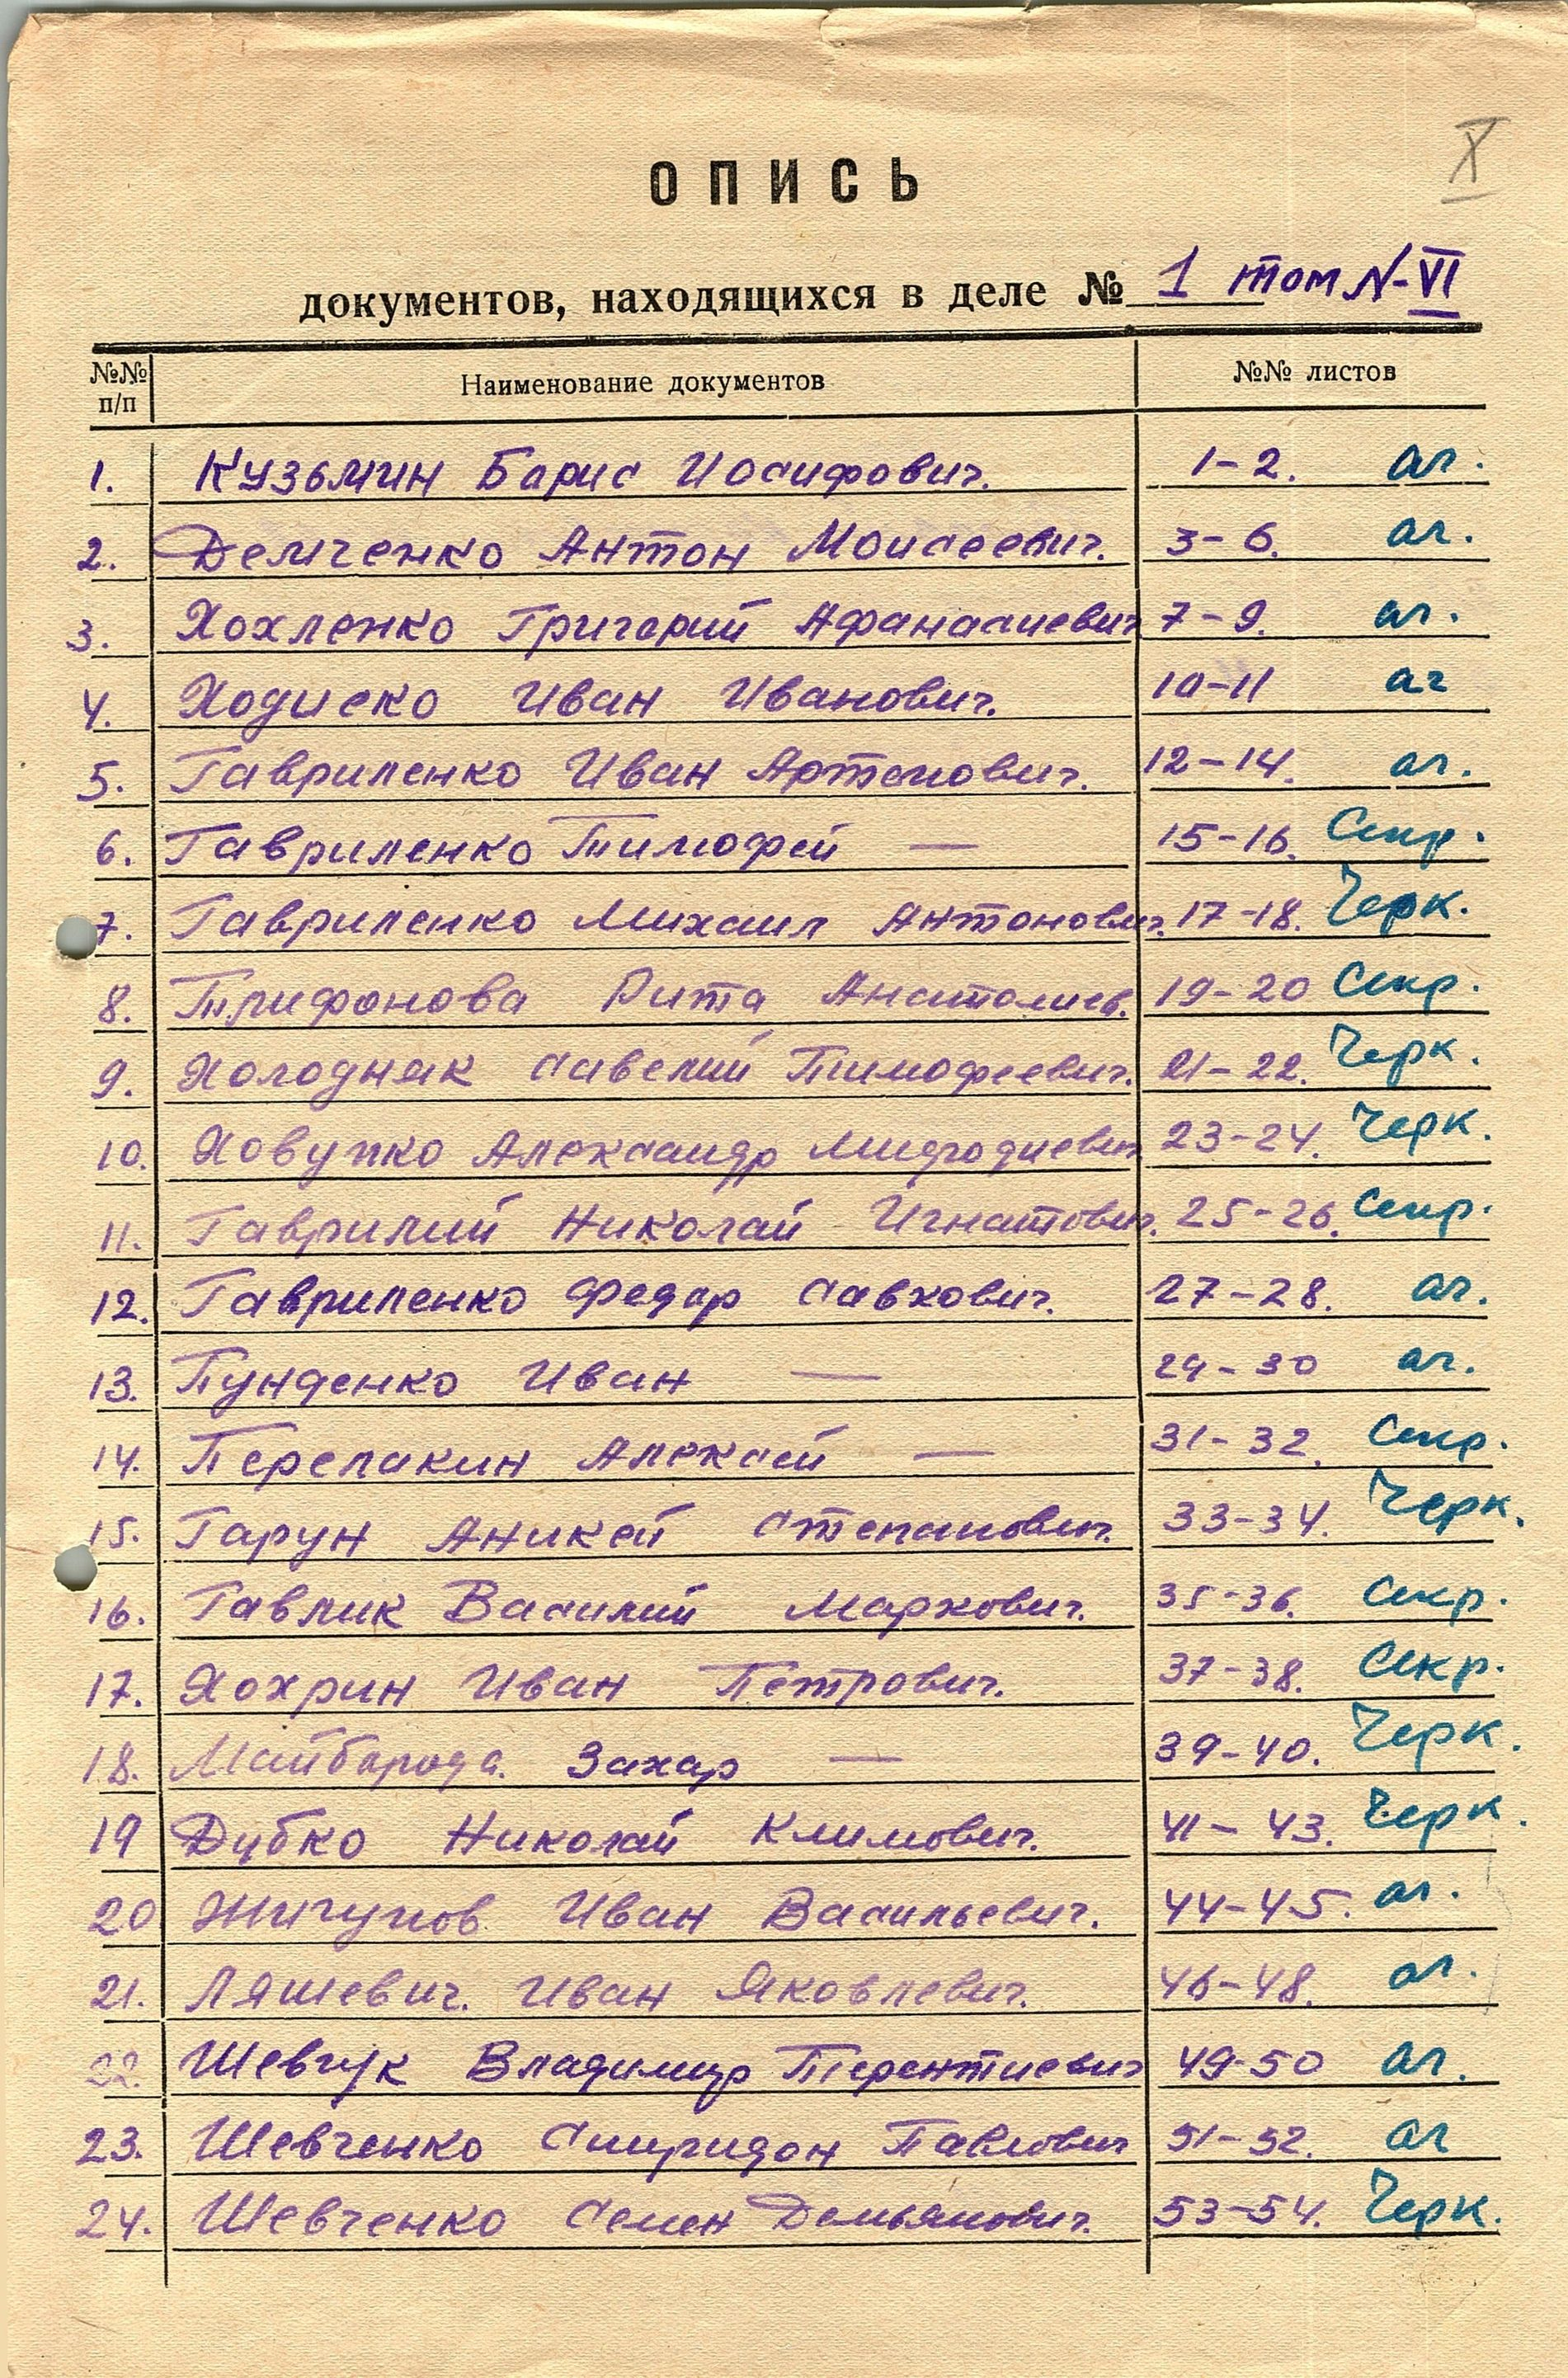 X
ОПИСЬ
документов, находящихся в деле № 1 том N-VI
№№ п/п Наименование документов №№ листов
1. Кузьмин Борис Иосифович. 1-2. аг.
2. Демченко Антон Моисеевич. 3-6. аг.
3. Хохленко Григорий Афанасиевич 7-9. аг.
4. Ходиеко Иван Иванович. 10-11 аг
5. Гавриленко Иван Артемович. 12-14. аг.
6. Гавриленко Тимофей — 15-16. Секр.
7. Гавриленко Михаил Антонович. 17-18. Черк.
8. Трифонова Рита Анатолиев. 19-20 Секр.
9. Холодняк Савелий Тимофеевич. 21-22. Черк.
10. Александр 23-24. Черк.
11. Гаврилий Николай Игнатович. 25-26. Секр.
12. Гавриленко Федор Савкович. 27-28. аг.
13. Иван — 29-30 аг.
14. Перелакин Алексей — 31-32. Секр.
15. Гарун Аникей Степанович. 33-34. Черк.
16. Гавлик Василий Маркович. 35-36. Секр.
17. Хохрин Иван Петрович. 37-38. Секр.
18. Майборода. Захар — 39-40. Черк.
19 Дубко Николай Климович. 41-43. Черк.
20 Жигунов Иван Васильевич. 44-45. аг.
21. Ляшевич. Иван Яковлевич. 46-48. аг.
22. Шевчук Владимир Терентиевич 49-50 аг.
23. Шевченко Спиридон Павлович 51-52. аг
24. Шевченко Семен Демьянович. 53-54. Черк.